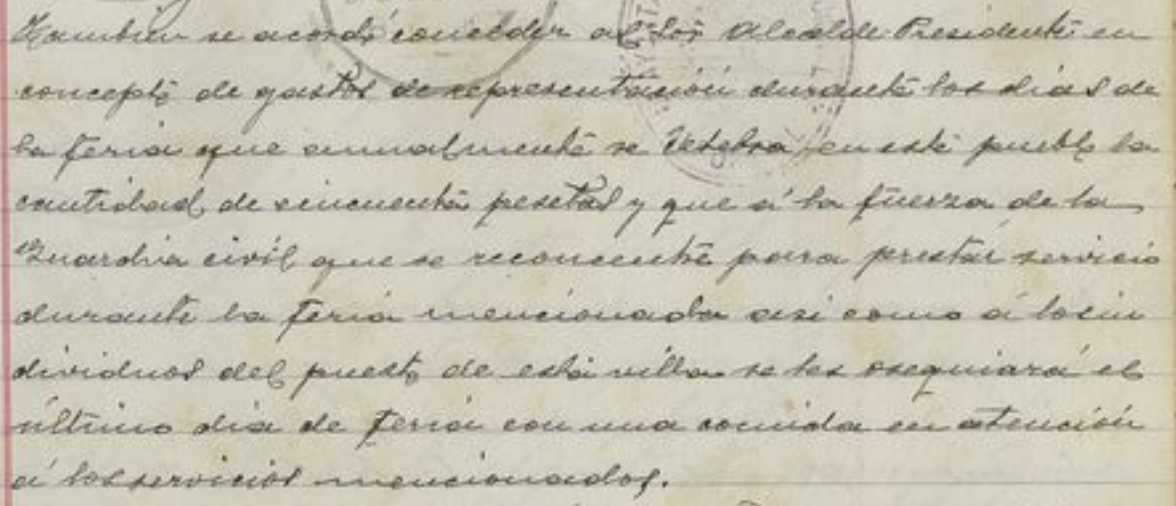 Tambien se acordó conceder al Sor Alcalde Presidente en
concepto de gastos de representación durante los dias de
la feria que anualmente se celebra en este pueblo la
cantidad de cincuenta pesetas y que á la fuerza de la
Guardia civil que se reconcentre para prestar servicio
durante la feria mencionada asi como á los in
dividuos del puesto de esta villa se les osequiará el
último dia de feria con una comida en atención
á los servicios mencionados.